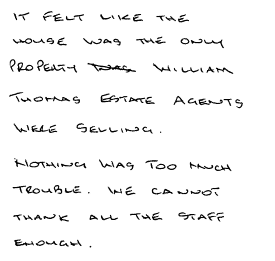 IT FELT LIKE THE
HOUSE WAS THE ONLY
PROPERTY WILLIAM
THOMAS ESTATE AGENTS
WERE SELLING.
NOTHING WAS TOO MUCH
TROUBLE. WE CANNOT
THANK ALL THE STAFF
ENOUGH.